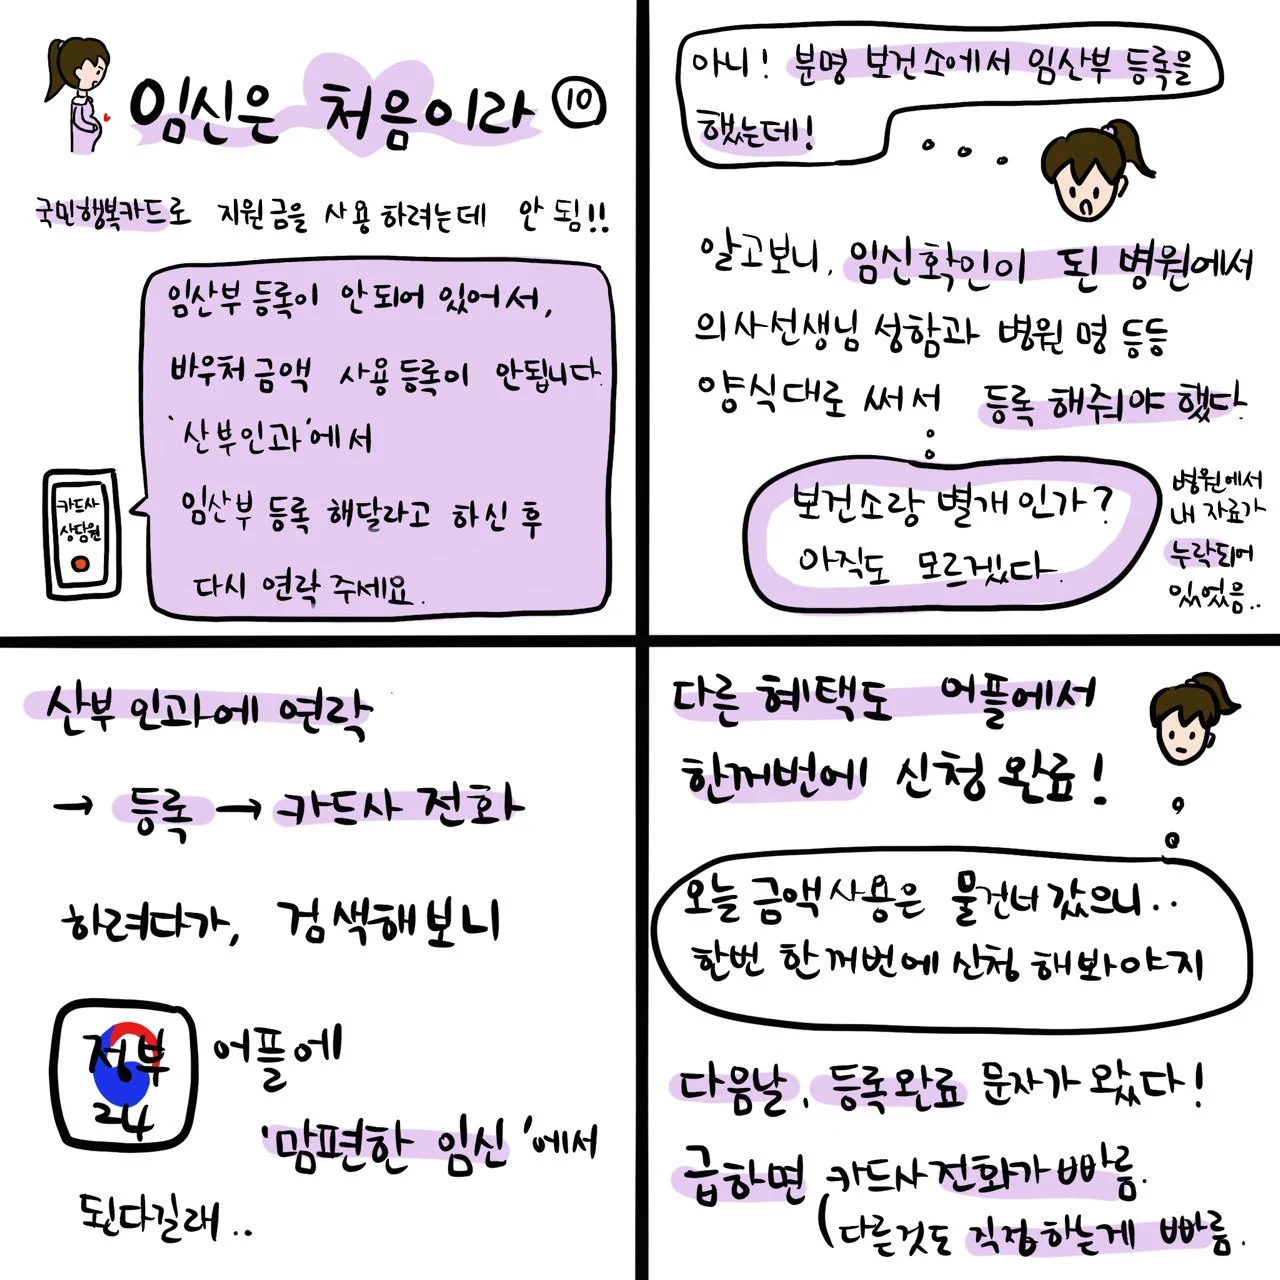 임신은 처음이라 ⑩
국민행복카드로 지원금을 사용하려는데 안 됨!!
임산부 등록이 안되어 있어서,
바우처 금액 사용등록이 안됩니다.
'산부인과'에서
임산부 등록 해달라고 하신 후
다시 연락 주세요.
카드사
상담원
아니! 분명 보건소에서 임산부 등록을
했는데!
알고보니, 임신확인이 된 병원에서
의사선생님 성함과 병원 명 등등
양식대로 써서 등록 해줘야 했다.
보건소랑 별개인가?
아직도 모르겠다.
병원에서
내 자료가
누락되어
있었음..
산부인과에 연락
→ 등록 → 카드사 전화
하려다가, 검색해보니
정부
24
어플에
'맘편한 임신'에서
된다길래..
다른 혜택도 어플에서
한꺼번에 신청완료!
오늘 금액사용은 물건너갔으니..
한번 한꺼번에 신청해봐야지
다음날, 등록완료 문자가 왔다!
급하면 카드사 전화가 빠름.
(다른것도 직접하는게 빠름.